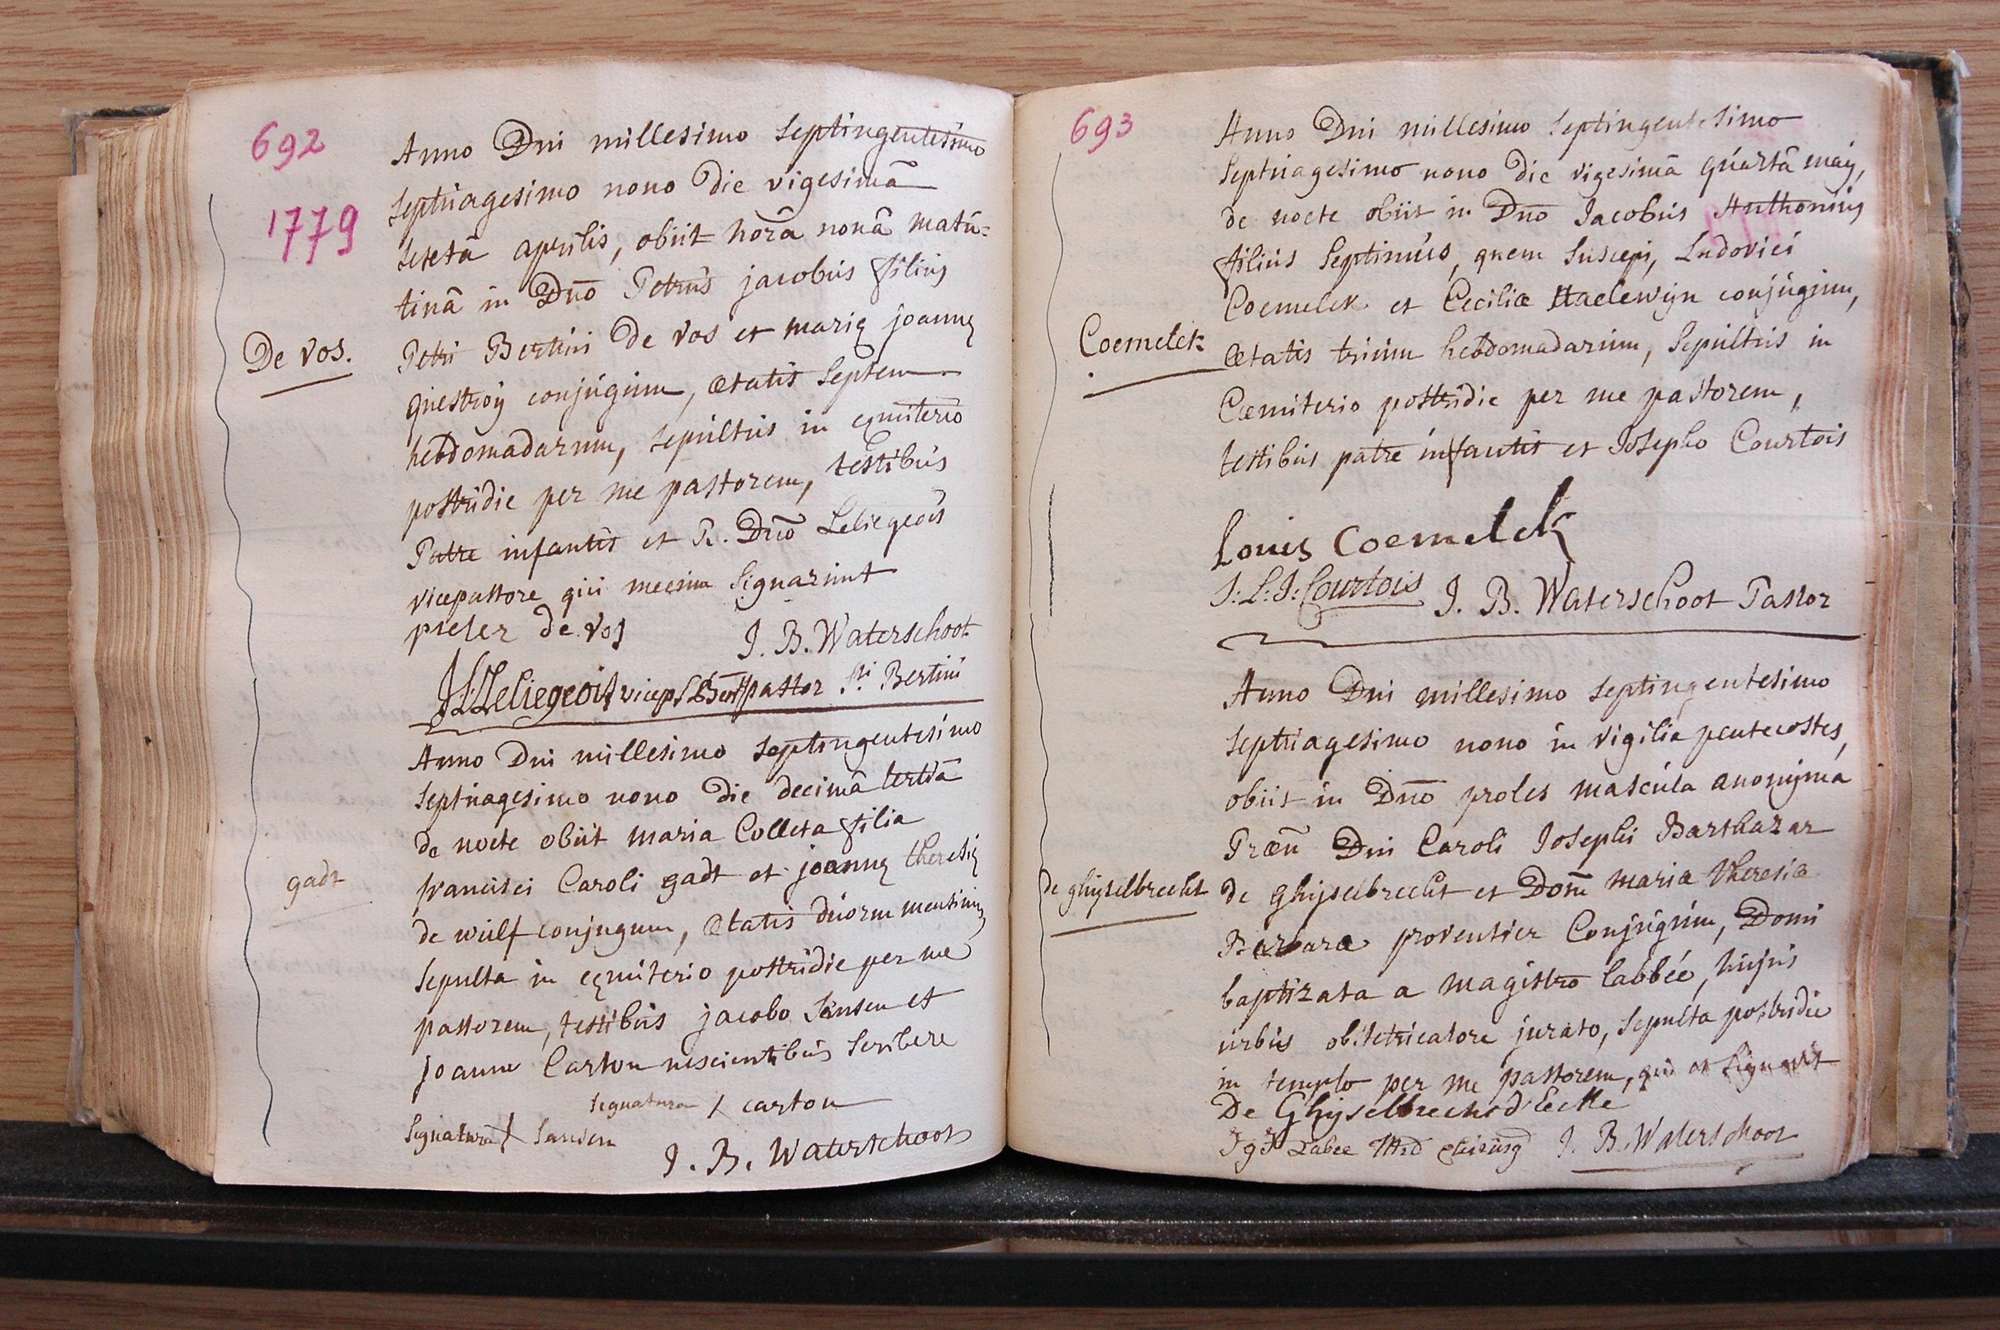 692
1779
Anno Dni millesimo septingentesimo
septuagesimo nono die vigesimâ
sextâ aprilis, obiit horâ nonâ matu-
tinâ in Dno Petrus jacobus filius
De Vos.
Petri Bertini De Vos et mariæ joannæ
questroy conjugum, ætatis septem
hebdomadarum, sepultus in cæmiterio
postridie per me pastorem, testibus
Patre infantis et R. Dno Leliegeois
vicepastore qui mecum signarunt
pieter de vos
J. B. Waterschoot
Leliegeois vicep S Bert pastor Sti Bertini
Anno Dni millesimo septingentesimo
septuagesimo nono die decimâ tertiâ
de nocte obiit maria Colleta filia
gadt
francisci Caroli gadt et joannæ theresiæ
de wulf conjugum, ætatis duorum mensium
sepulta in cæmiterio postridie per me
pastorem, testibus jacobo Sansen et
joanne Carton nescientibus scribere
signatura X carton
signatura X Sansen
J. B. Waterschoot
693
Anno Dni millesimo septingentesimo
septuagesimo nono die vigesimâ quartâ maÿ,
de nocte obiit in Dno Jacobus Anthonius
filius septimus, quem suscepi, Ludovici
Coemelck et Ceciliæ Haelewÿn conjugum,
Coemelck
ætatis trium hebdomadarum, sepultus in
Cæmiterio postridie per me pastorem,
testibus patre infantis et Josepho Courtois
Louis Coemelck
J. B. Waterschoot Pastor
J: L: J: Courtois
Anno Dni millesimo septingentesimo
septuagesimo nono in vigilia pentecostes,
obiit in Dno proles mascula anonÿma
Præn Dni Caroli Josephi Barthazar
de ghÿselbrecht
de ghÿselbrecht et Dom maria theresia
Barbara proventier Conjugum, Domi
baptizata a magistro labbée, hujus
urbis obstetricatore jurato, sepulta postridie
in templo per me pastorem, qui et signavit
De Ghÿselbrecht
Labee
J. B. Waterschoot